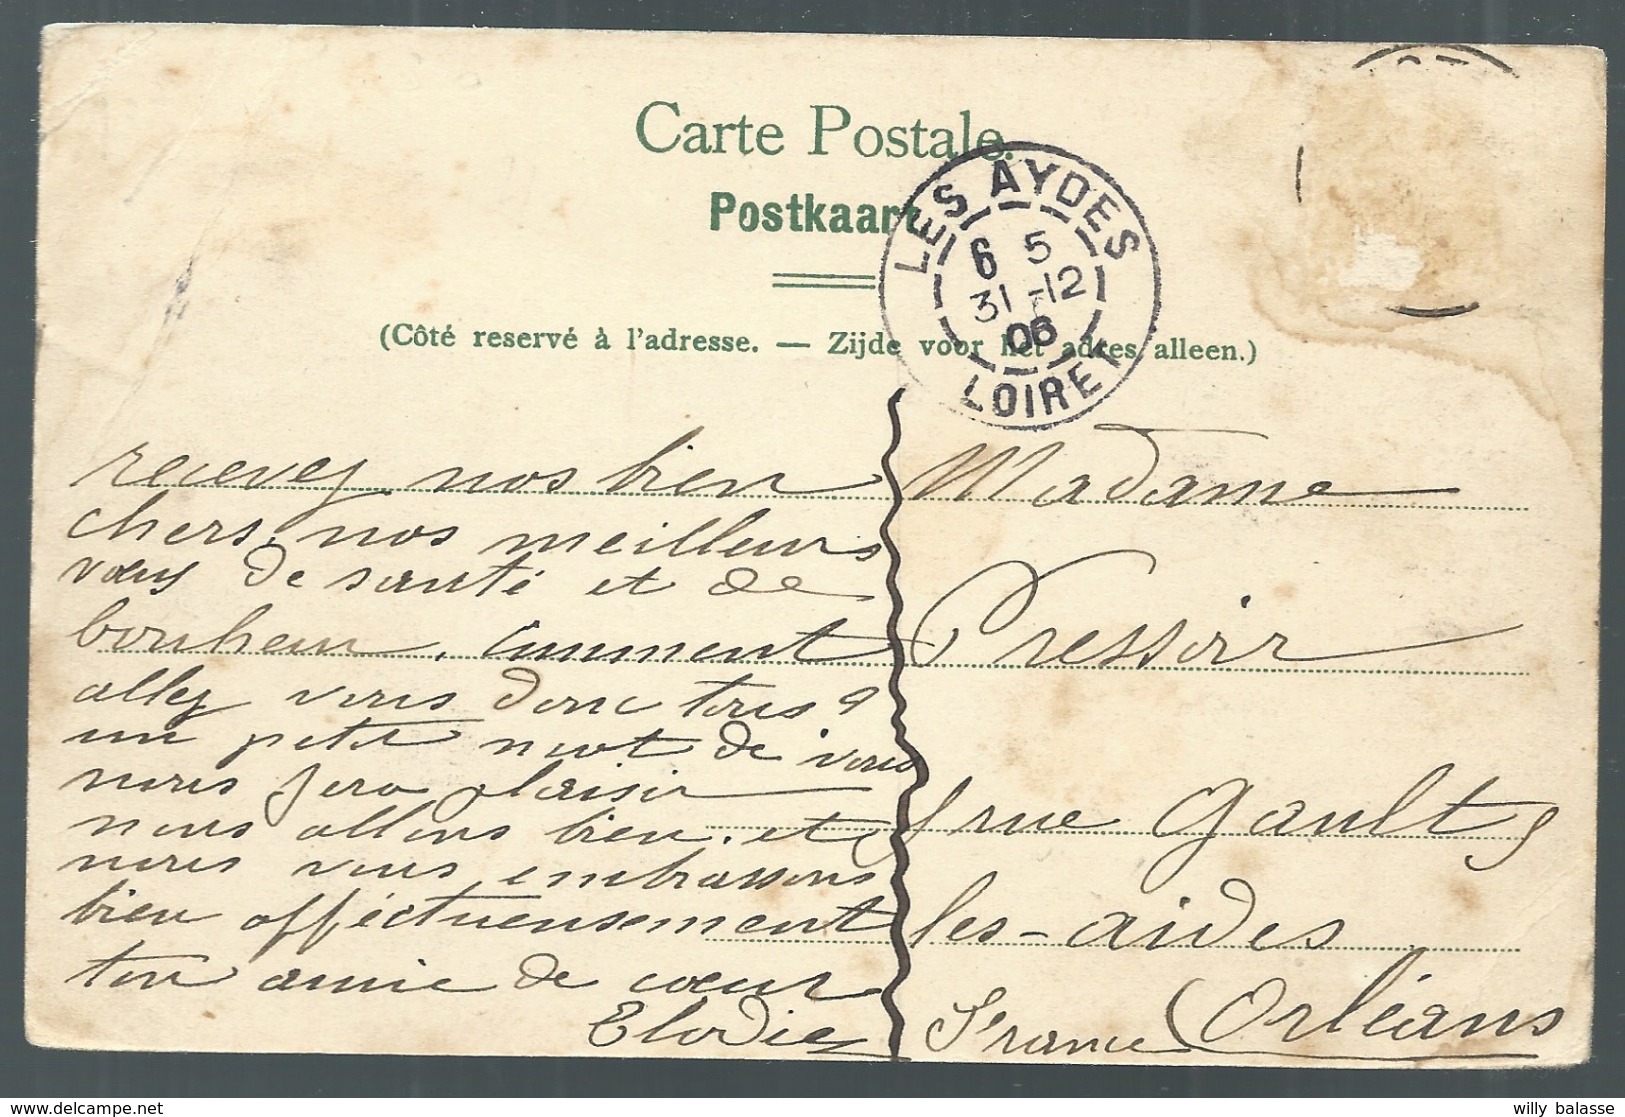 Carte Postale.
Postkaart
(Côté reservé à l'adresse. — Zijde voor het adres alleen.)
LES AYDES
6 5
31 -12
06
LOIRET
recevez nos bien
chers, nos meilleurs
vœux de santé et de
bonheur. comment
allez vous donc tous?
un petit mot de vous
nous fera plaisir
nous allons bien. et
nous vous embrassons
bien afféctueusement
ton amie de cœur
Elodie
Madame
Pressoir
rue Gault
les-aides
France (Orléans
delcampe.net
willy balasse